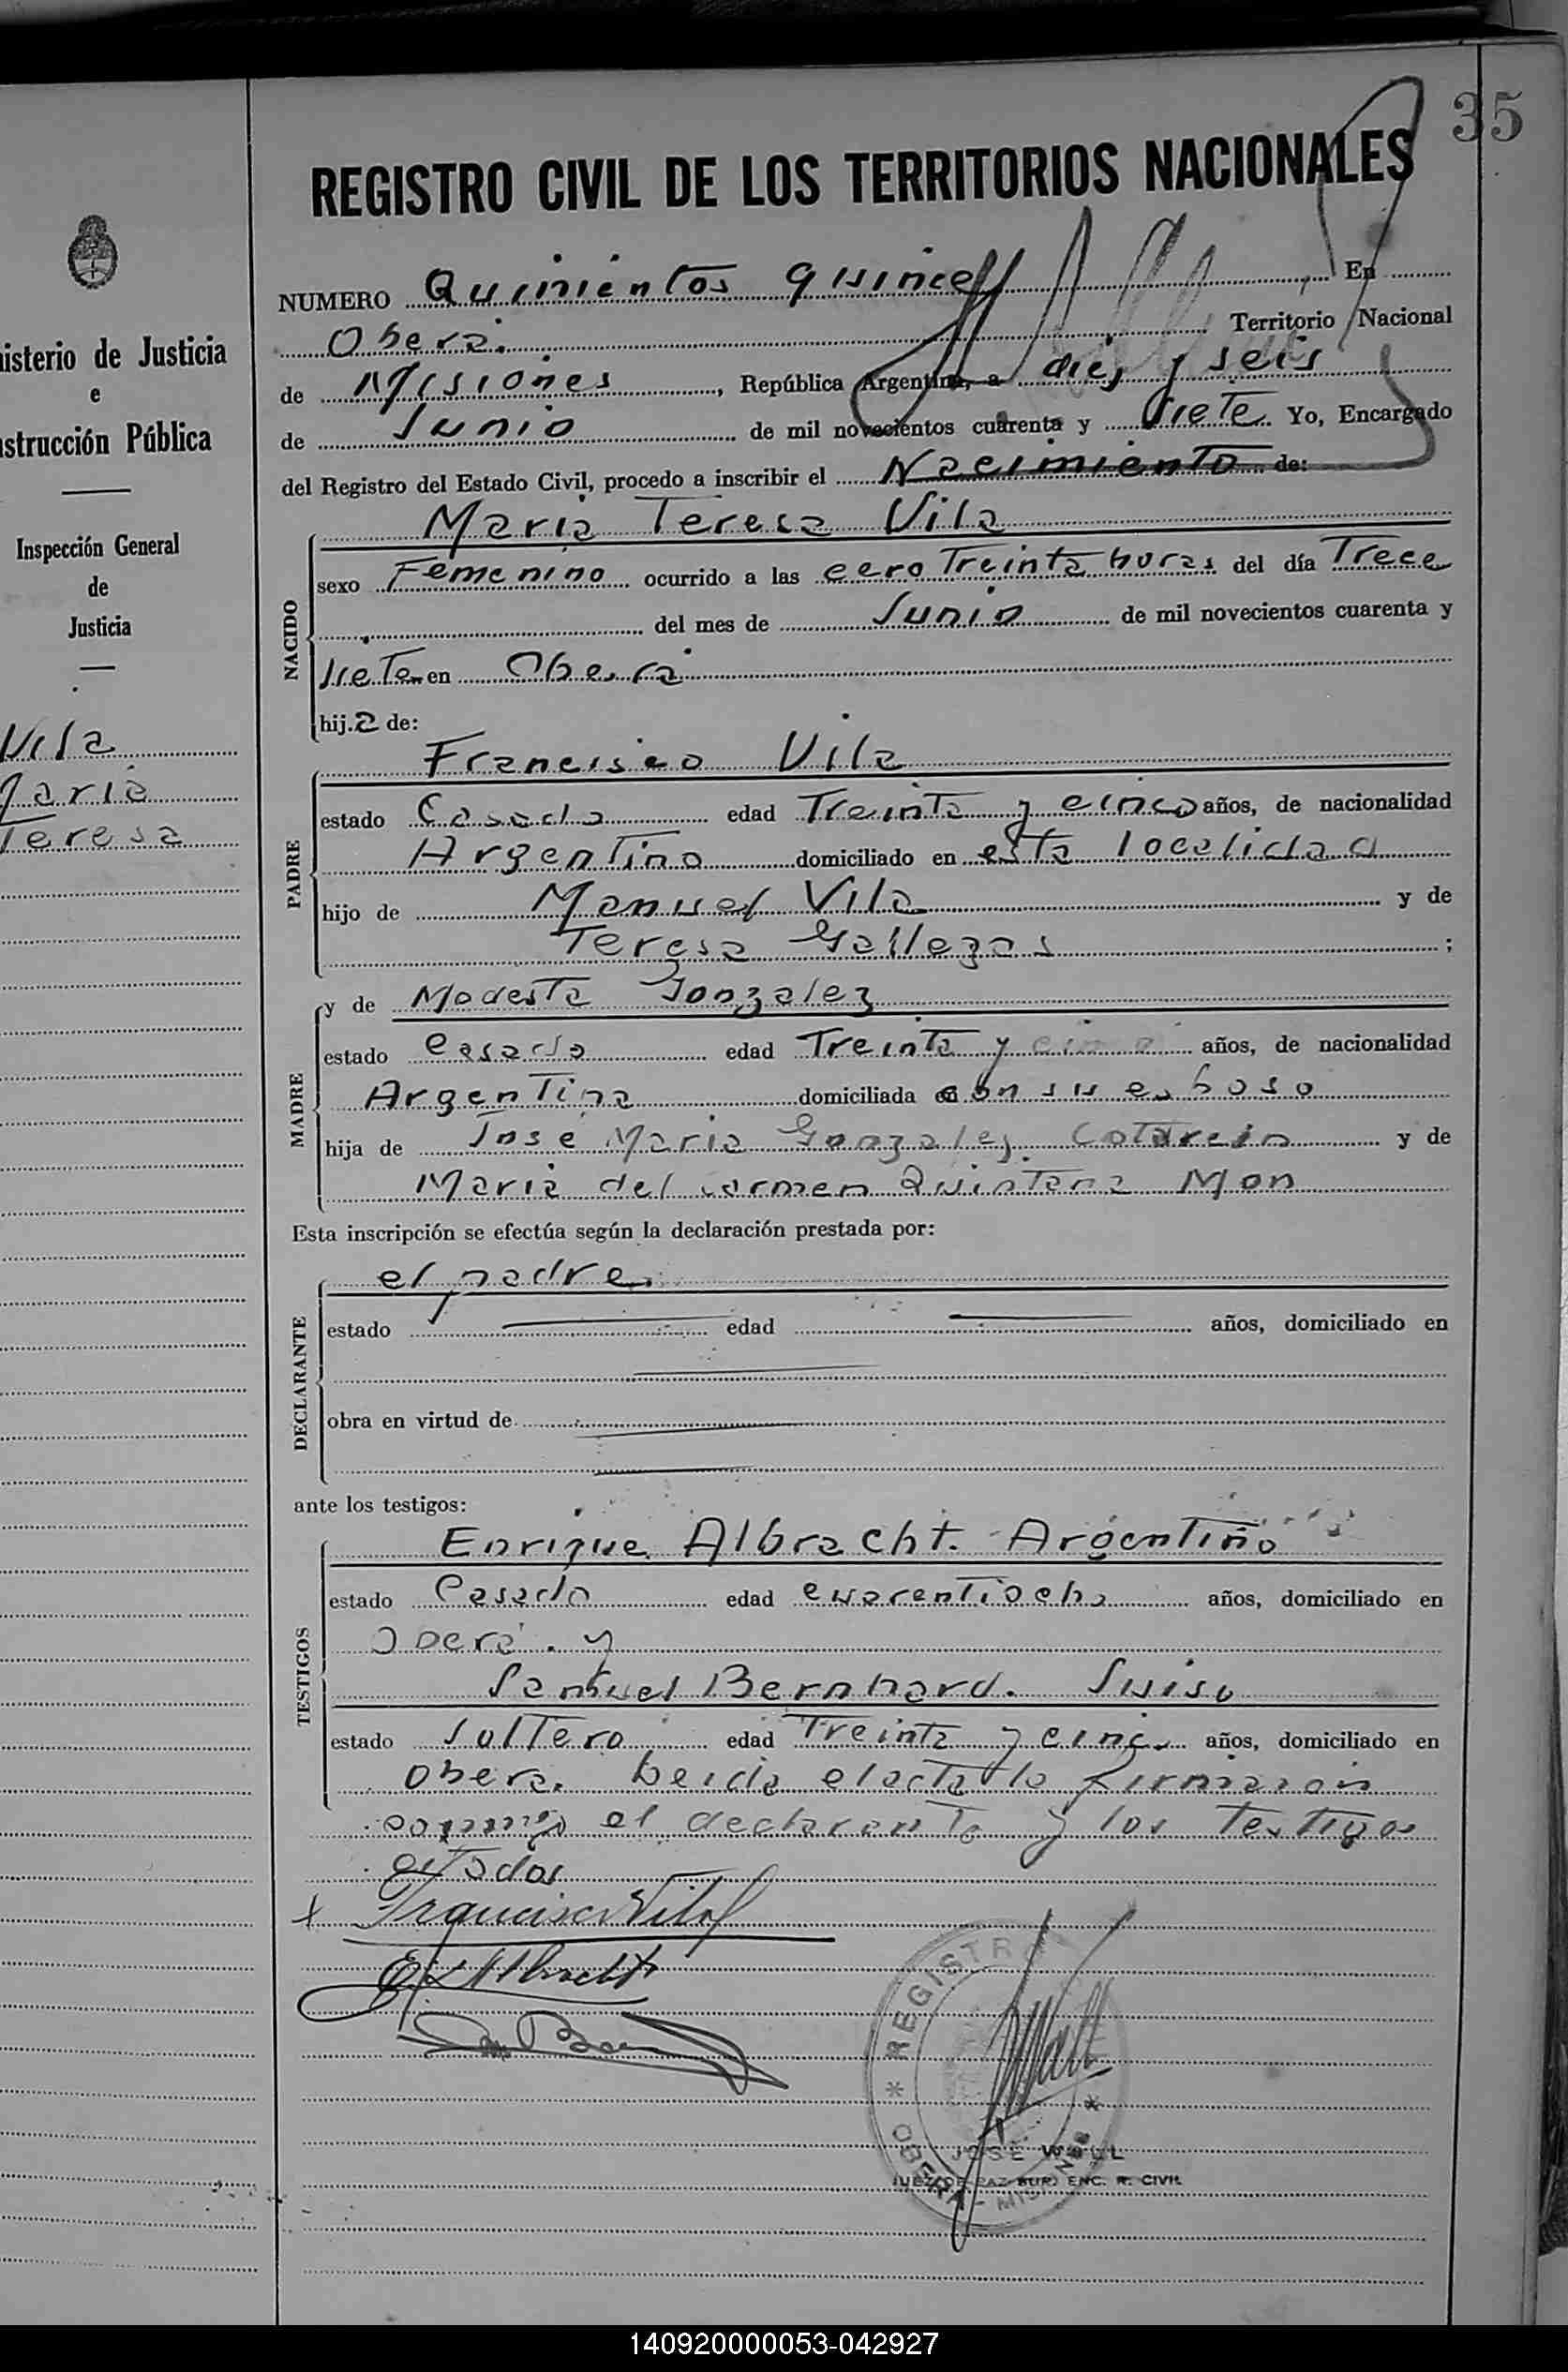 35
REGISTRO CIVIL DE LOS TERRITORIOS NACIONALES
NUMERO Quinientos quince En
Oberá. Territorio Nacional
de Misiones, República Argentina, a diez y seis
de Junio de mil novecientos cuarenta y siete Yo, Encargado
del Registro del Estado Civil, procedo a inscribir el Nacimiento de:
NACIDO
Maria Teresa Vila
sexo Femenino ocurrido a las cero Treinta horas del día Trece
del mes de Junio de mil novecientos cuarenta y
siete en Oberá
hija de:
PADRE
Francisco Vila
estado Casado edad Treinta y cinco años, de nacionalidad
Argentino domiciliado en esta localidad
hijo de Manuel Vila y de
Teresa Gallegos ;
MADRE
y de Modesta Gonzalez
estado casada edad Treinta y años, de nacionalidad
Argentina domiciliada con su esposo
hija de José Maria Gonzalez y de
Maria del carmen Quintana Mon
Esta inscripción se efectúa según la declaración prestada por:
DECLARANTE
el padre.
estado edad años, domiciliado en
obra en virtud de
ante los testigos:
TESTIGOS
Enrique Albracht. Argentino
estado Casado edad cuarentiocho años, domiciliado en
Oberá. y
Samuel Bernhard. Suiso
estado soltero edad Treinta y cinco años, domiciliado en
Obera. Leida el acta la firmaron
conmigo el declarante y los Testigos
citados
Francisco Vila
E Albracht
REGISTRO
OBERA - MISIONES
JOSE WALL
JUEZ DE PAZ SUP. ENC. R. CIVIL
nisterio de Justicia
e
nstrucción Pública
Inspección General
de
Justicia
Vila
Maria
Teresa
140920000053-042927